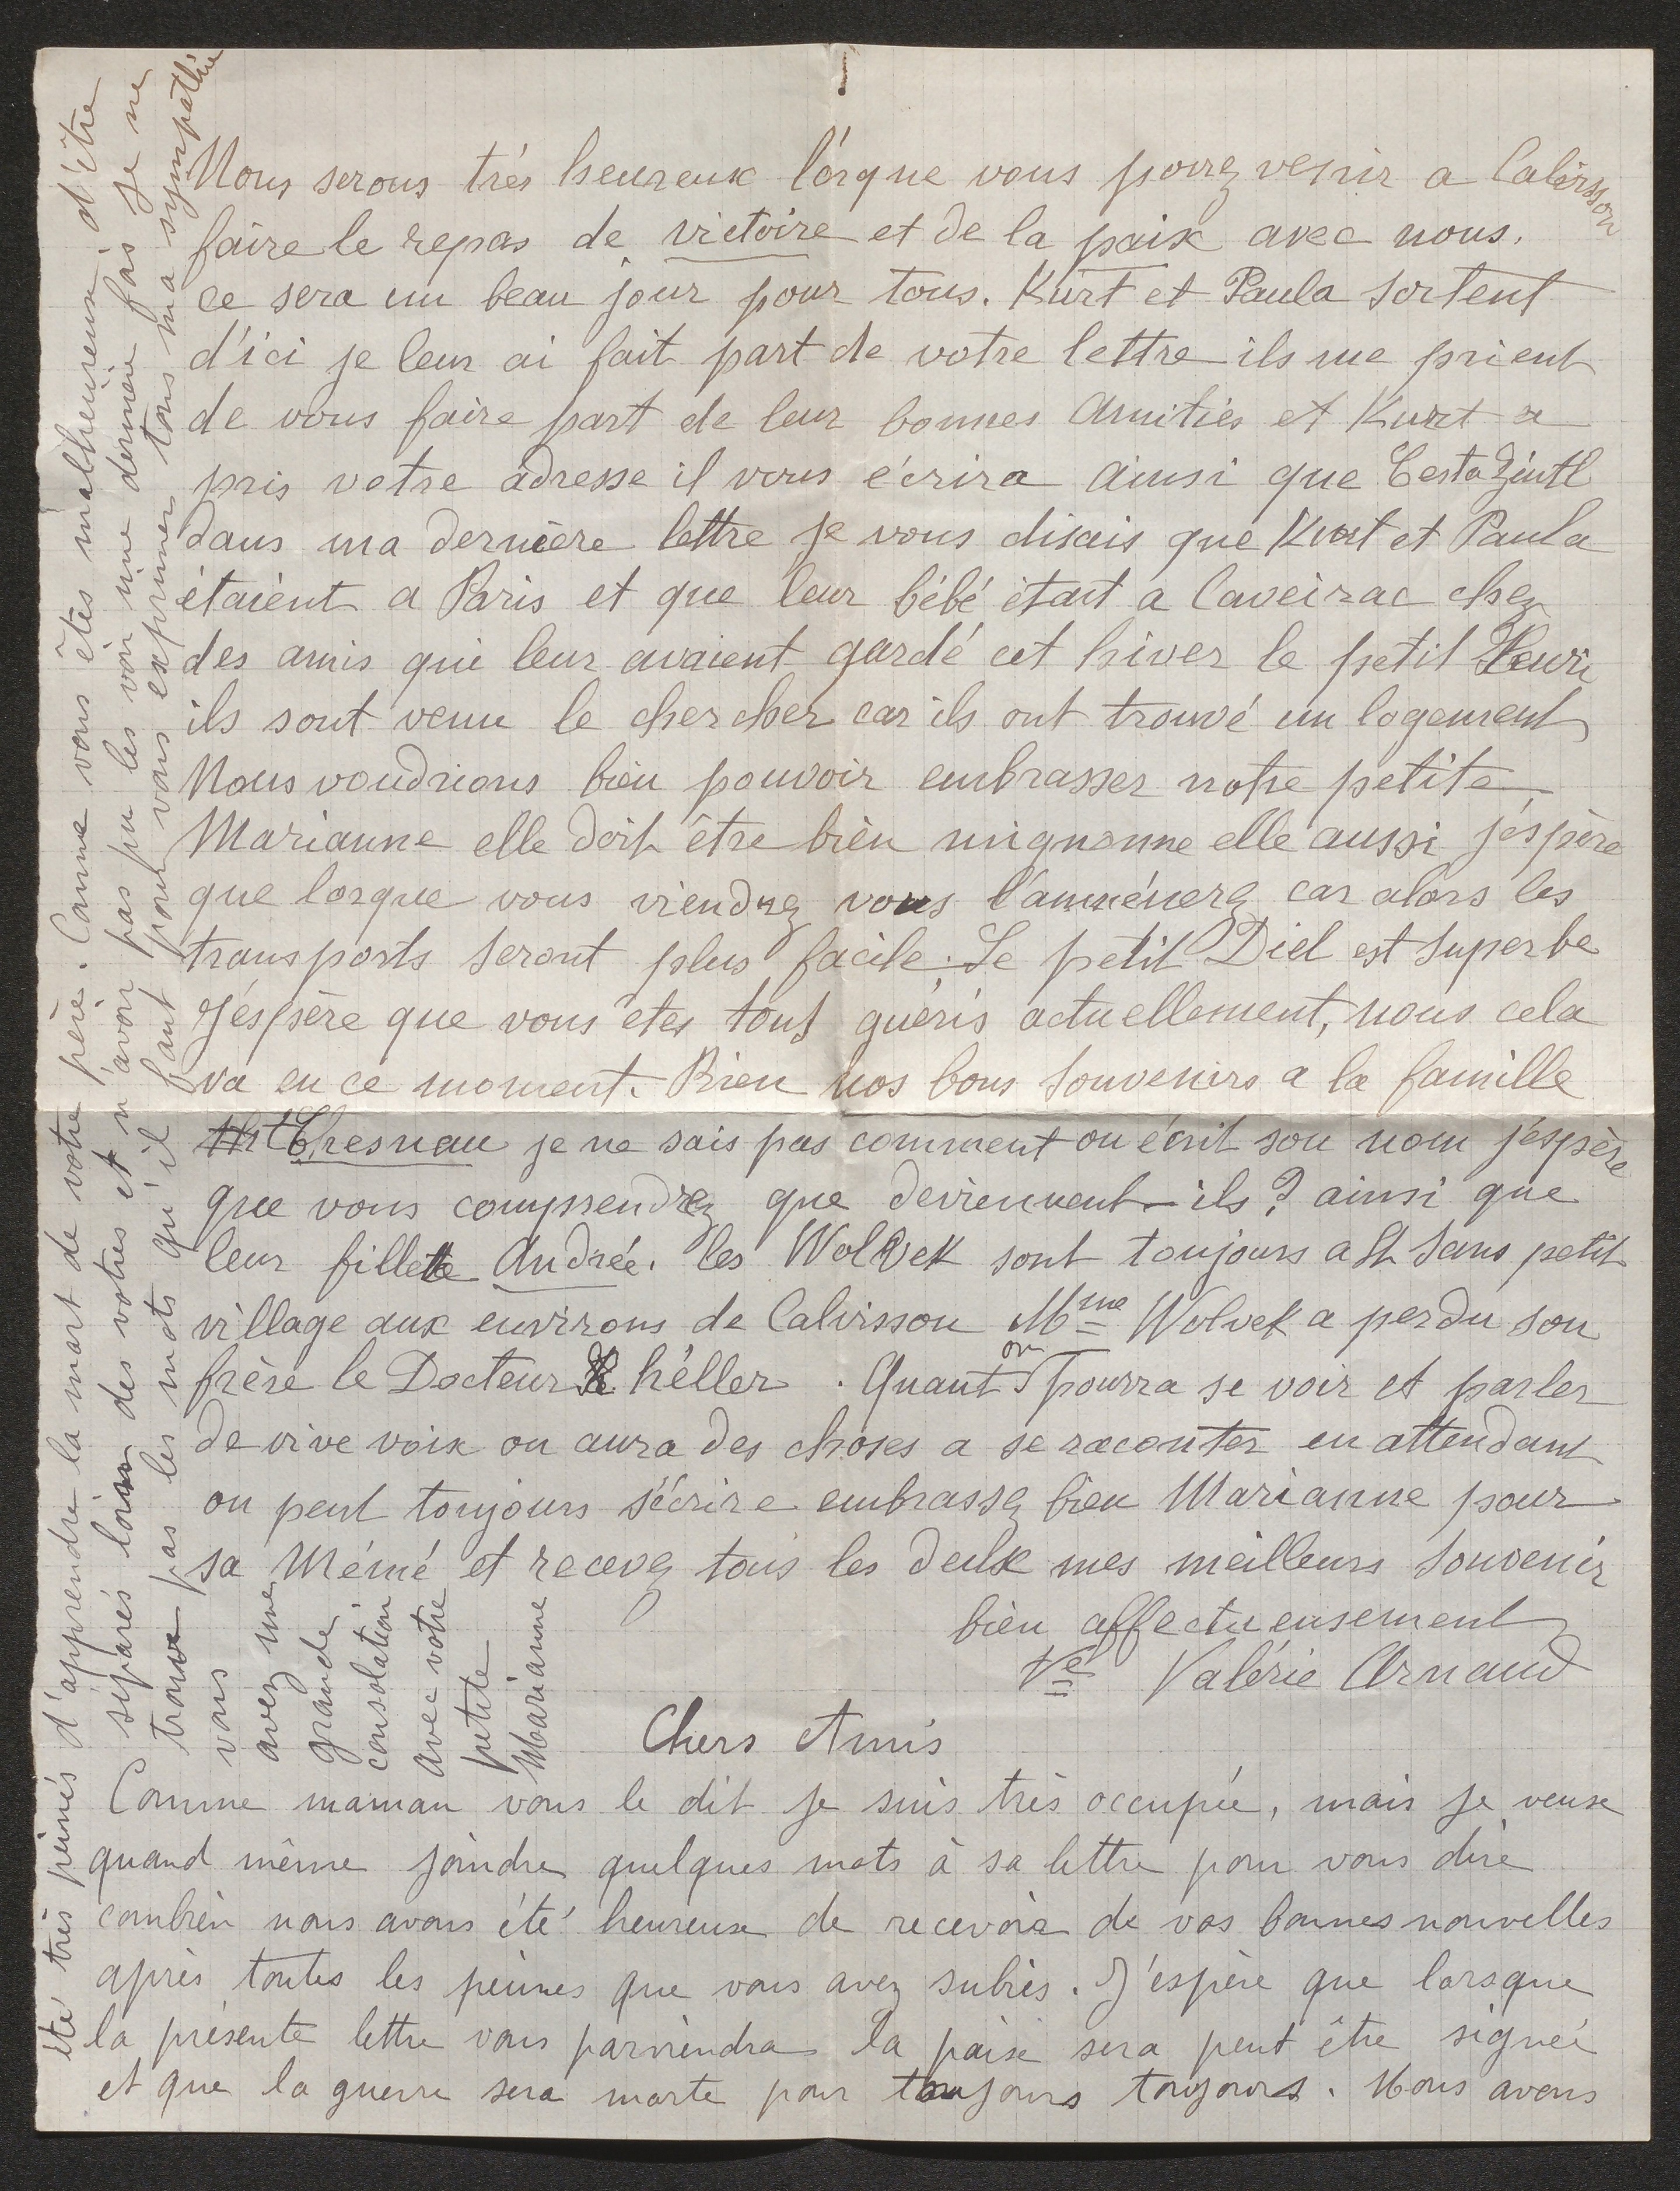 Nous serons très heureux l'orque vous pourez venir a Calvisson
faire le repas de victoire et de la paix avec nous.
ce sera un beau jour pour tous. Kurt et Paula sortent
d'ici je leur ai fait part de votre lettre ils me prient
de vous faire part de leur bonnes Amitiés et Kurt a
pris votre adresse il vous écrira ainsi que
dans ma dernière lettre je vous disais que Kurt et Paula
étaient a Paris et que leur bébé était a Caveirac chez
des amis qui leur avaient gardé cet hiver le petit Henri
ils sont venu le chercher car ils ont trouvé un logement
Nous voudrions bien pouvoir embrasser notre petite
Marianne elle doit être bien mignonne elle aussi j'éspère
que lorque vous viendrez vous l'amménerz car alors les
transports seront plus facile. Le petit Diel est superbe
J'éspère que vous êtes tous guéris actuellement, nous cela
va en ce moment. Bien nos bons souvenirs a la famille
Chesnau je ne sais pas comment on écrit son nom j'espère
que vous comprendrez que deviennent-ils? ainsi que
leur fillette Andrée. les Wolvek sont toujours a St
petit
village aux environs de Calvisson Mme Wolvek a perdu son
frère le Docteur héller. Quant on pourra se voir et parler
de vive voix on aura des choses a se raconter en attendant
on peut toujours s'écrire embrassz bien Marianne pour
sa Mémé et recevez tous les deux mes meilleurs souvenir
bien affectueusement
Ve Valérie Arnaud
Chers Amis
Comme maman vous le dit je suis très occupée, mais je veux
quand même joindre quelques mots à sa lettre pour vous dire
combien nous avons été heureux de recevoir de vos bonnes nouvelles
après toutes les peines que vous avez subies. J'espère que lorsque
la présente lettre vous parviendra la paix sera peut être signée
et que la guerre sera morte pour toujours toujours. Nous avons
été très peinés d'apprendre la mort de votre père. Comme vous êtes malheureux d'être
séparés loin des votres et n'avoir pas pu les voir une dernière fois je ne
trouve pas les mots qu'il faut pour vous exprimer tous ma sympathie
vous
avez une
grande
consolation
avec votre
petite
Marianne